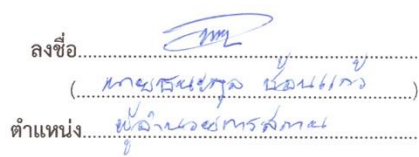 ลงชื่อ
(นาย ช้อนแก้ว)
ตำแหน่ง ผู้อำนวยการสถาน